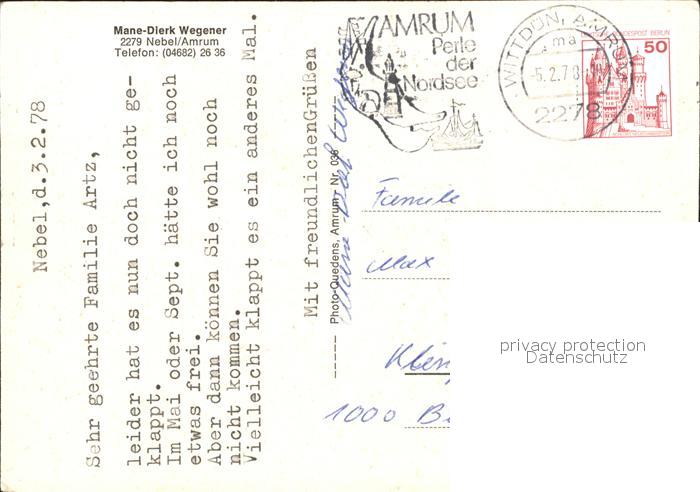 Mane-Dierk Wegener
2279 Nebel/Amrum
Telefon: (04682) 26 36
Nebel,d.3.2.78
Sehr geehrte Familie Artz,
leider hat es nun doch nicht ge-
klappt.
Im Mai oder Sept. hätte ich noch
etwas frei.
Aber dann können Sie wohl noch
nicht kommen.
Vielleicht klappt es ein anderes Mal.
Mit freundlichenGrüßen
Photo-Quedens, Amrum · Nr. 036
AMRUM
Perle
der
Nordsee
WITTDÜN, AMRUM
ma
-6.2.78
2278
DEUTSCHE BUNDESPOST BERLIN
50
Familie
Max
1000 B
privacy protection
Datenschutz